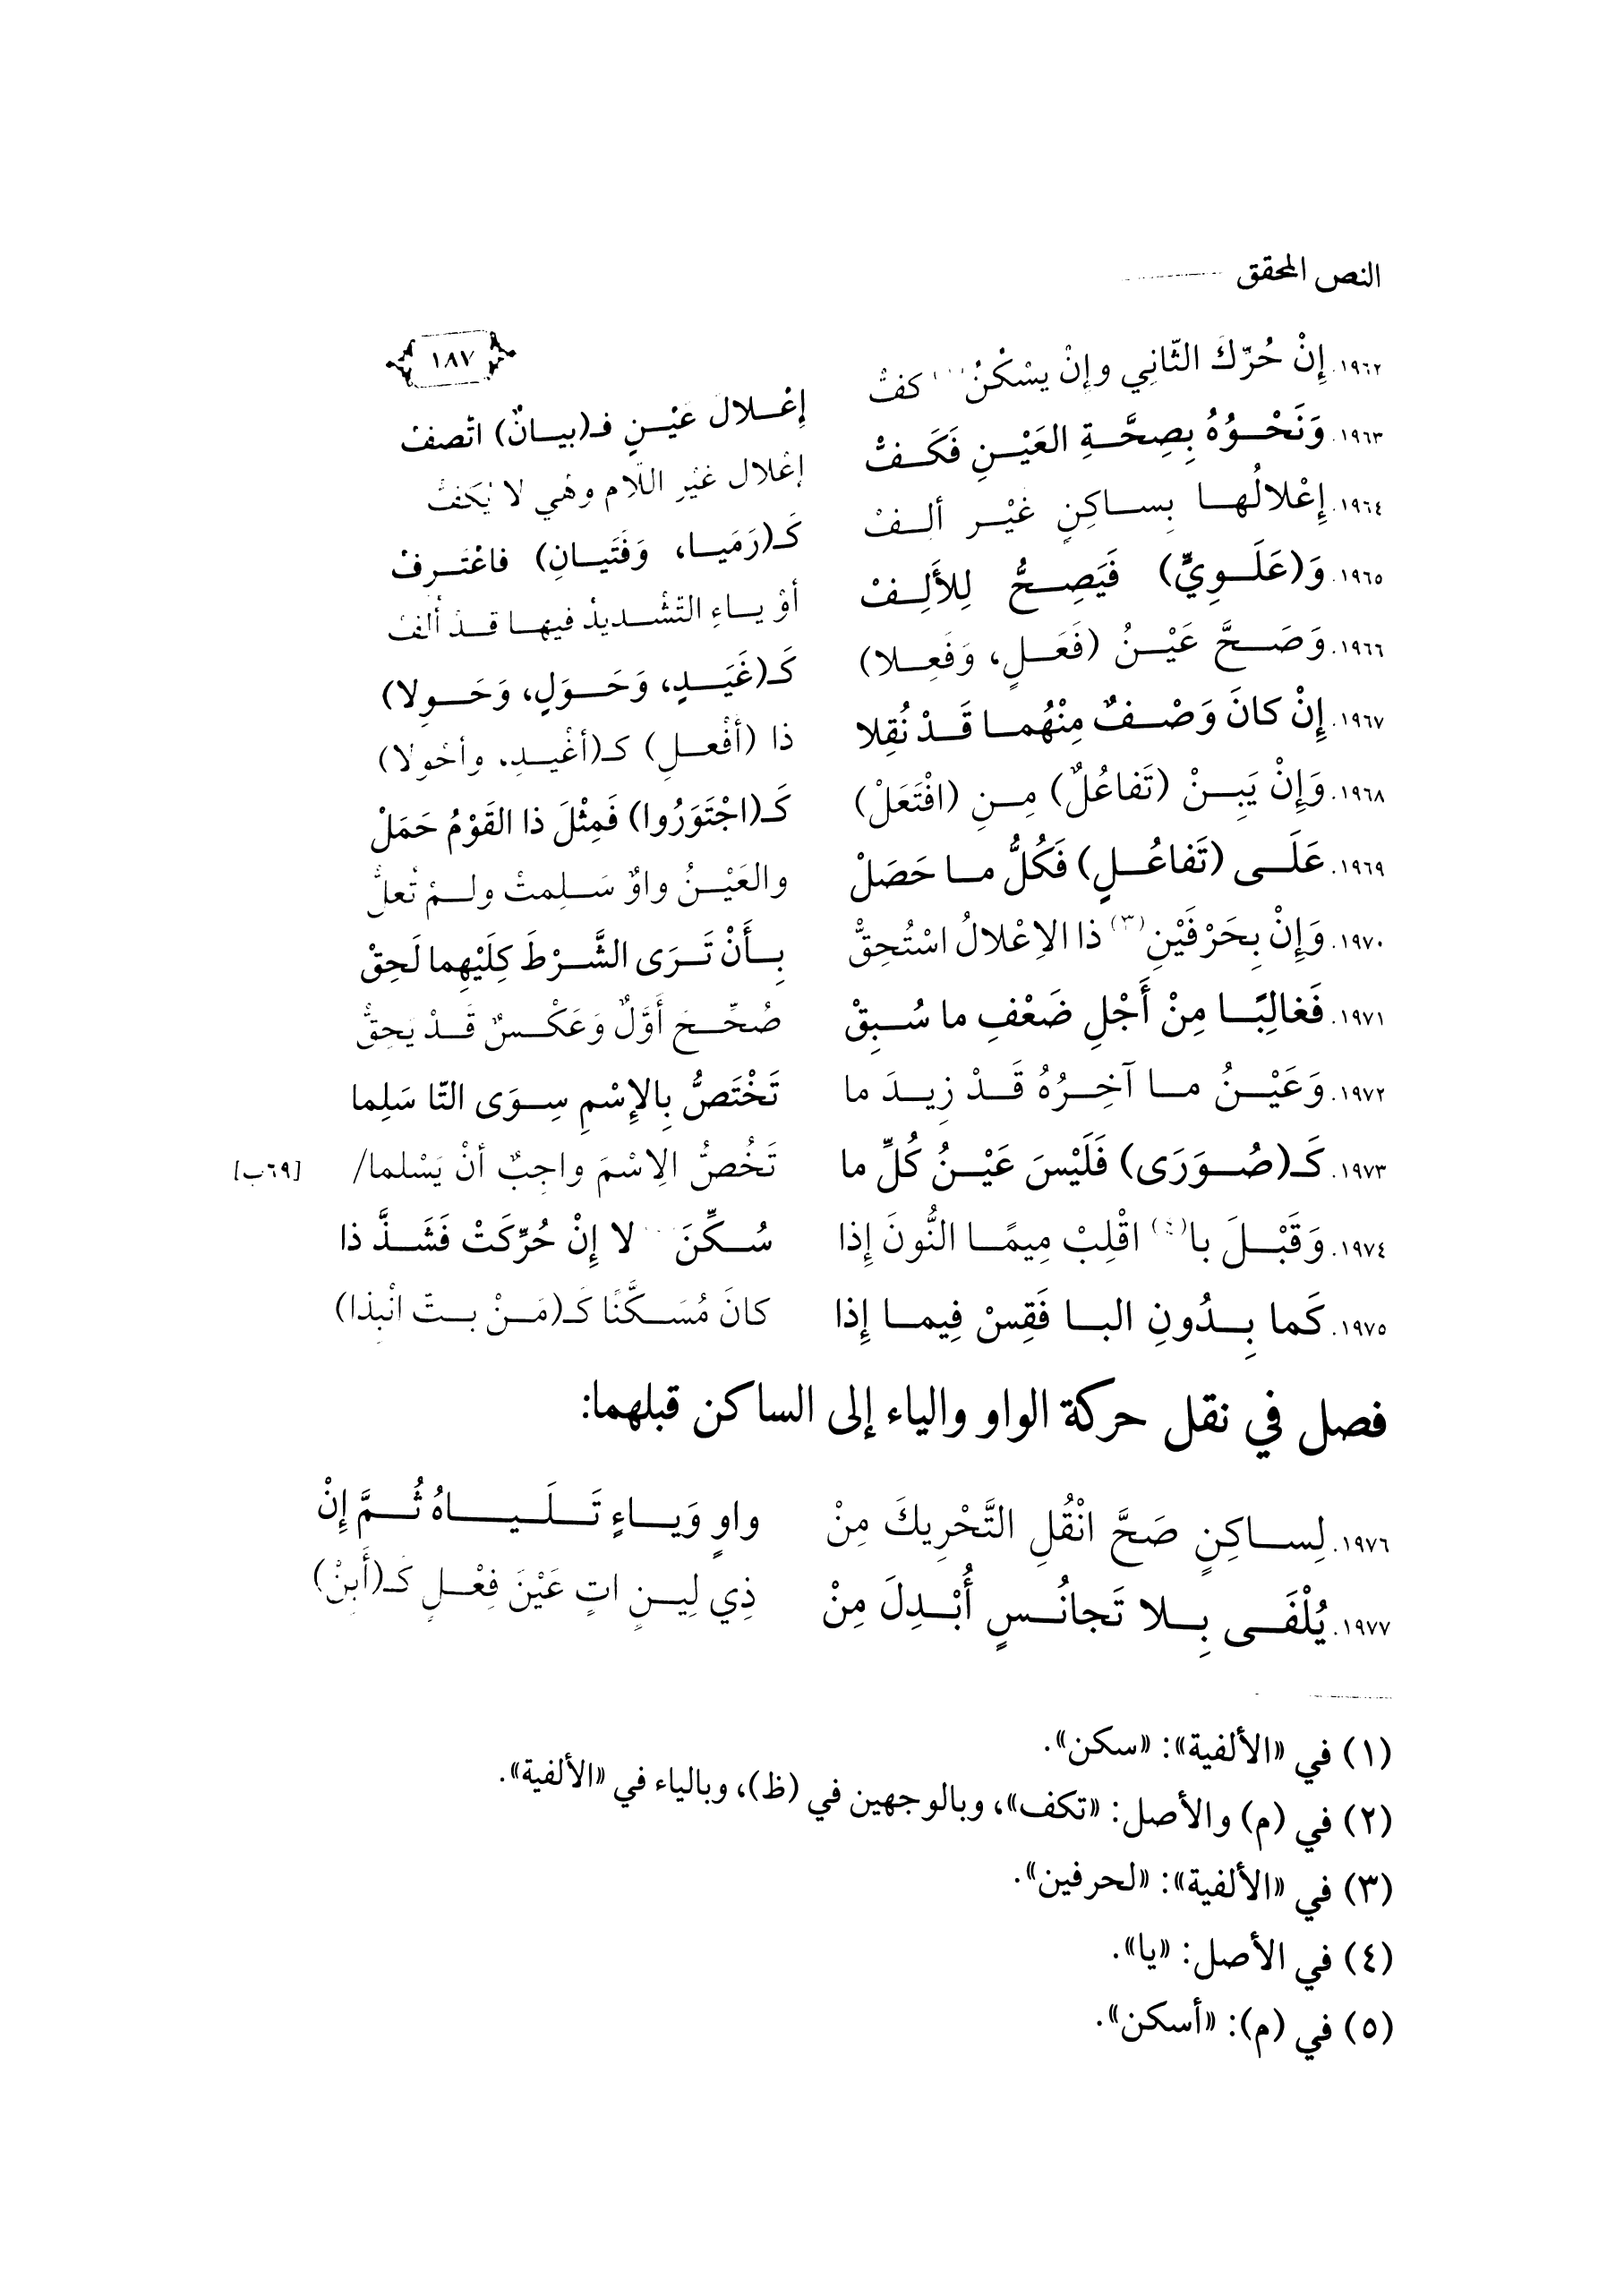 النص المحقق
١٨٧
١٩٦٢. إِنْ حُرِّكَ الثّانِي وإِنْ يسْكُنْ كفتْ إِعْلالَ عَيْنٍ فـ(بيانٌ) اتّصفْ
١٩٦٣. وَنَحْوُهُ بِصِحَّةِ العَيْنِ فَكَفْ إعْلال غيْرِ اللّام وهْي لا يُكَفْ
١٩٦٤. إِعْلالُها بِساكِنٍ غيْر ألفْ كَـ(رَمَيا، وَفَتَيانِ) فاعْتَرِفْ
١٩٦٥. وَ(عَلَوِيٍّ) فَيَصِحُّ لِلأَلِفْ أوْ ياءِ التّشْديدُ فيها قدْ أُلفْ
١٩٦٦. وَصَحَّ عَيْنُ (فَعَلٍ، وَفَعِلا) كَـ(غَيَدٍ، وَحَوَلٍ، وَحَوِلا)
١٩٦٧. إِنْ كانَ وَصْفٌ مِنْهُما قَدْ نُقِلا ذا (أفْعلٍ) كـ(أغْيدٍ، وأحْولا)
١٩٦٨. وَإِنْ يَبِنْ (تَفاعُلٌ) مِنِ (افْتَعَلْ) كَـ(اجْتَوَرُوا) فَمِثْلَ ذا القَوْمُ حَمَلْ
١٩٦٩. عَلَى (تَفاعُلٍ) فَكُلُّ ما حَصَلْ والعَيْنُ واوٌ سَلِمتْ ولمْ تُعلّْ
١٩٧٠. وَإِنْ بِحَرْفَيْنِ(٣) ذا الاِعْلالُ اسْتُحِقّْ بِأَنْ تَرَى الشَّرْطَ كِلَيْهِما لَحِقْ
١٩٧١. فَغالِبًا مِنْ أَجْلِ ضَعْفِ ما سُبِقْ صُحِّحَ أَوَّلٌ وَعَكْسٌ قَدْ يَحِقّْ
١٩٧٢. وَعَيْنُ ما آخِرُهُ قَدْ زِيدَ ما تَخْتَصُّ بِالإِسْمِ سِوَى التّا سَلِما
١٩٧٣. كَـ(صُوَرَى) فَلَيْسَ عَيْنُ كُلِّ ما تَخُصُّ الِاسْمَ واجِبٌ أنْ يَسْلما/ [٦٩ب]
١٩٧٤. وَقَبْلَ با(٤) اقْلِبْ مِيمًا النُّونَ إِذا سُكِّنَ لا إِنْ حُرِّكَتْ فَشَذَّ ذا
١٩٧٥. كَما بِدُونِ البا فَقِسْ فِيما إِذا كانَ مُسَكَّنًا كَـ(مَنْ بتّ انْبِذا)
فصل في نقل حركة الواو والياء إلى الساكن قبلهما:
١٩٧٦. لِساكِنٍ صَحَّ انْقُلِ التَّحْرِيكَ مِنْ واوٍ وَياءٍ تَلَياهُ ثُمَّ إِنْ
١٩٧٧. يُلْفَى بِلا تَجانُسٍ أُبْدِلَ مِنْ ذِي لِينٍ اتٍ عَيْنَ فِعْلٍ كَـ(أَبِنْ)
(١) في «الألفية»: «سكن».
(٢) في (م) والأصل: «تكف»، وبالوجهين في (ظ)، وبالياء في «الألفية».
(٣) في «الألفية»: «لحرفين».
(٤) في الأصل: «يا».
(٥) في (م): «أسكن».